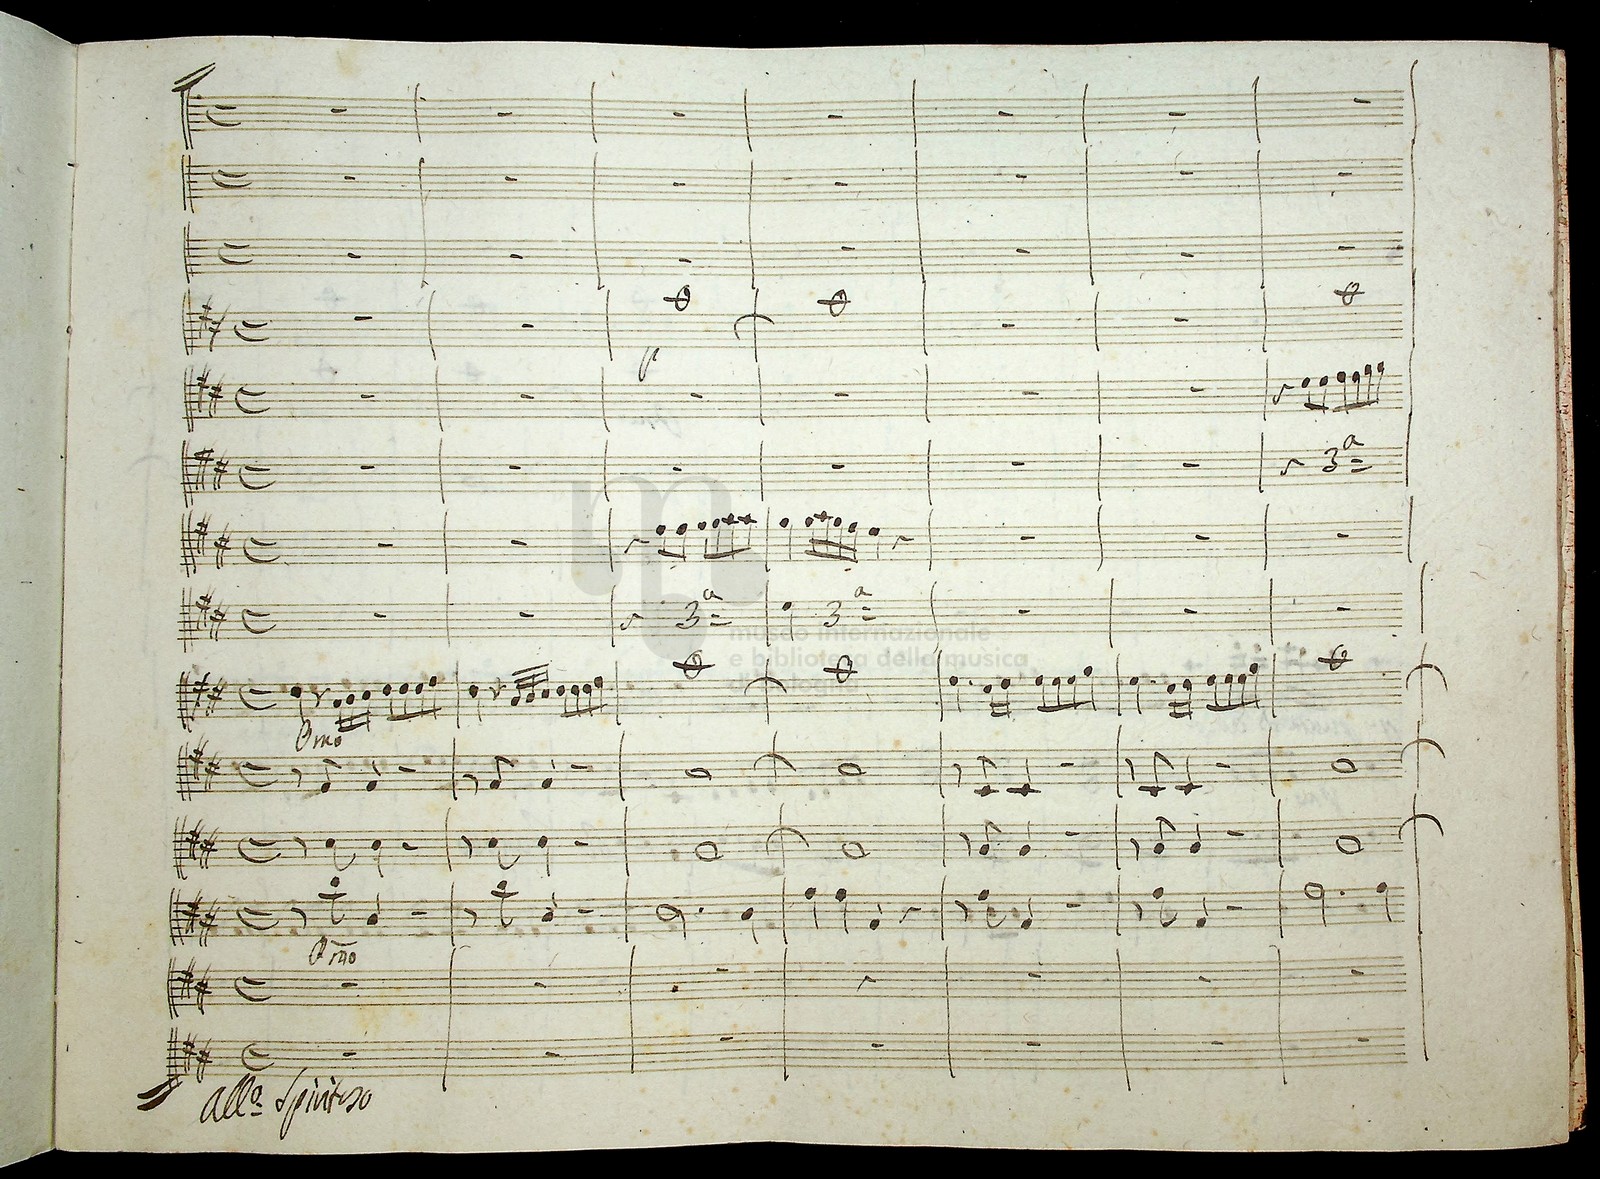 p
3ª
3ª 3ª
museo internazionale
e biblioteca della musica
di bologna
all.º Spiritoso